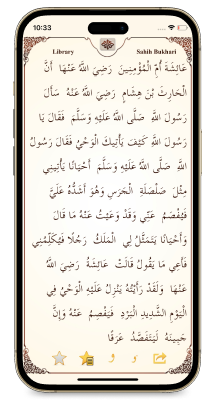 10:33
Library Sahih Bukhari
عَائِشَةَ أُمِّ الْمُؤْمِنِينَ رَضِيَ اللَّهُ عَنْهَا أَنَّ
الْحَارِثَ بْنَ هِشَامٍ رَضِيَ اللَّهُ عَنْهُ سَأَلَ
رَسُولَ اللَّهِ صَلَّى اللَّهُ عَلَيْهِ وَسَلَّمَ فَقَالَ يَا
رَسُولَ اللَّهِ كَيْفَ يَأْتِيكَ الْوَحْيُ فَقَالَ رَسُولُ
اللَّهِ صَلَّى اللَّهُ عَلَيْهِ وَسَلَّمَ أَحْيَانًا يَأْتِينِي
مِثْلَ صَلْصَلَةِ الْجَرَسِ وَهُوَ أَشَدُّهُ عَلَيَّ
فَيُفْصَمُ عَنِّي وَقَدْ وَعَيْتُ عَنْهُ مَا قَالَ
وَأَحْيَانًا يَتَمَثَّلُ لِي الْمَلَكُ رَجُلًا فَيُكَلِّمُنِي
فَأَعِي مَا يَقُولُ قَالَتْ عَائِشَةُ رَضِيَ اللَّهُ
عَنْهَا وَلَقَدْ رَأَيْتُهُ يَنْزِلُ عَلَيْهِ الْوَحْيُ فِي
الْيَوْمِ الشَّدِيدِ الْبَرْدِ فَيَفْصِمُ عَنْهُ وَإِنَّ
جَبِينَهُ لَيَتَفَصَّدُ عَرَقًا